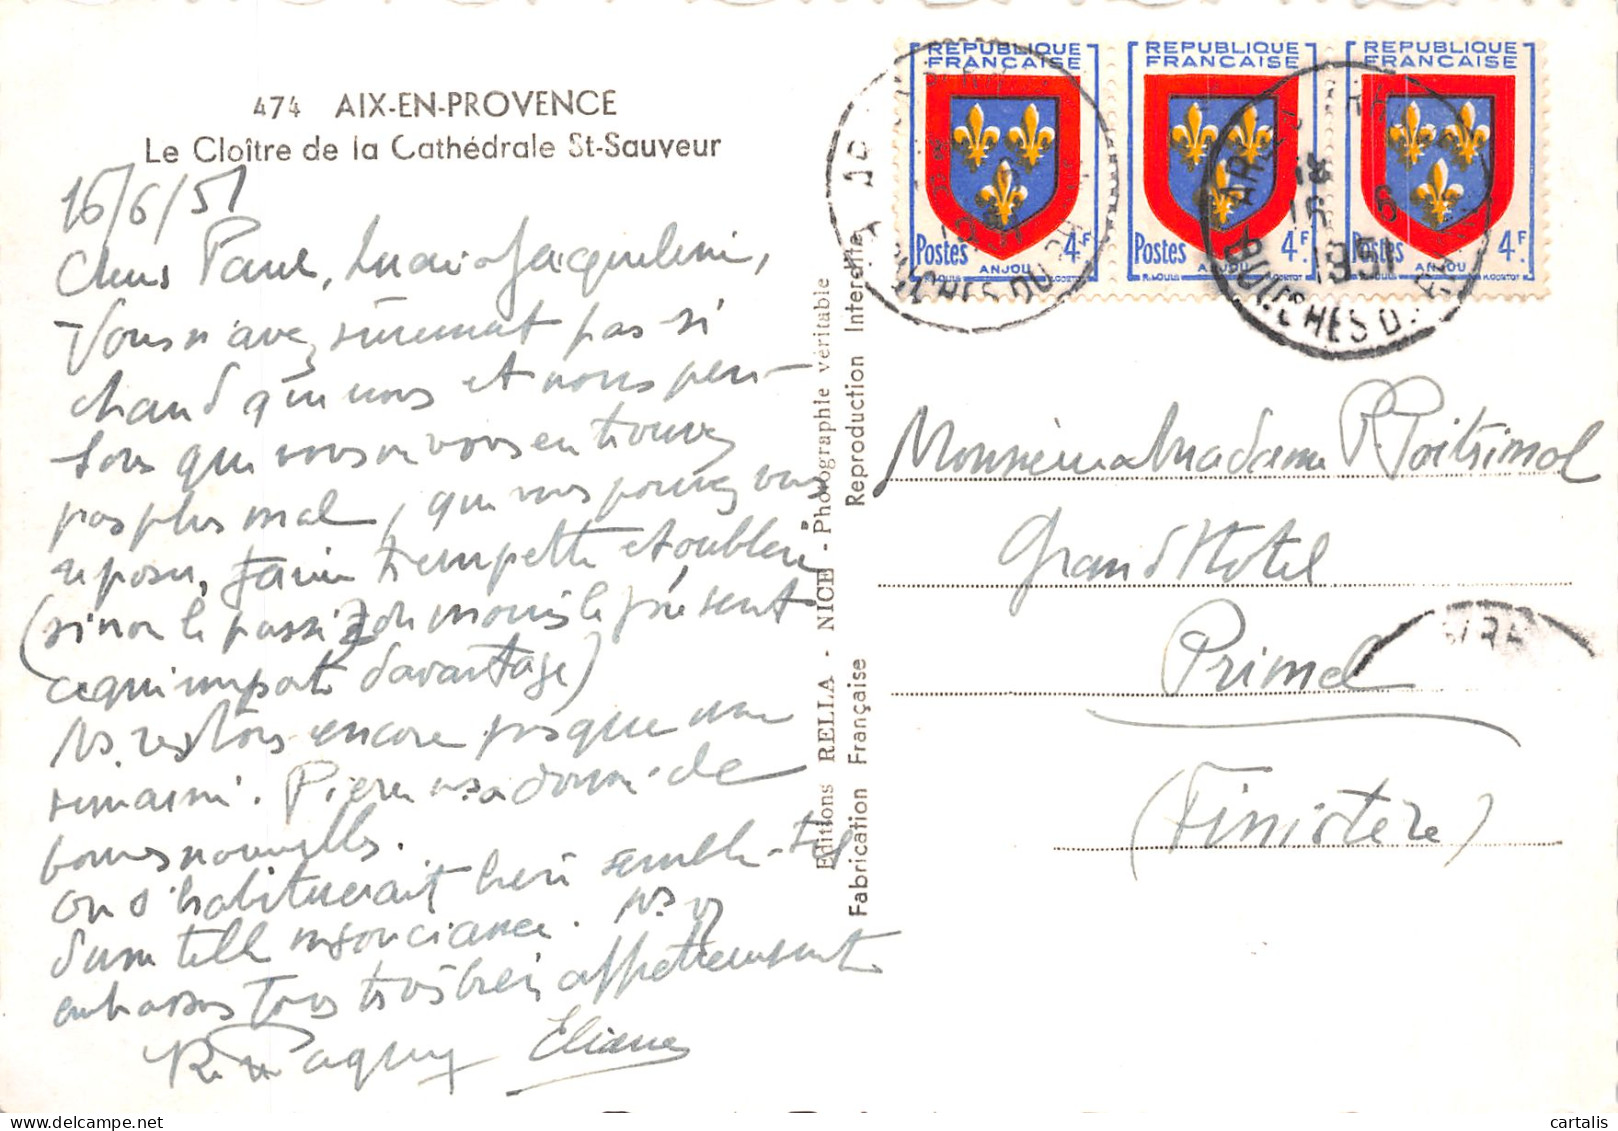 474 AIX-EN-PROVENCE
Le Cloître de la Cathédrale St-Sauveur
16/6/51
Chers Paul, Jacqueline,
Vous n'avez sûrement pas si
chaud que nous et nous pen-
sons que vous vous en trouvez
pas plus mal, que vous pouvez vous
reposer, faire trempette et oublier
(sinon le passé du moins le présent
ce qui importe davantage)
Ns restons encore presque une
semaine. Pierre ns a donné de
bonnes nouvelles.
On s'habituerait bien semble-t-il
d'une telle insouciance. Ns vs
embrassons tous très bien affectueusement
Paquy Eliane
Editions RELLA - NICE - Photographie véritable
Fabrication Française Reproduction Interdite
REPUBLIQUE FRANCAISE
Postes 4F
ANJOU
REPUBLIQUE FRANCAISE
Postes 4F
ANJOU
REPUBLIQUE FRANCAISE
Postes 4F
ANJOU
ARLES
18
16 6
1951
BOUCHES D.
Monsieur Madame P. Poitrimol
Grand Hotel
Primel
(Finistère)
cartalis